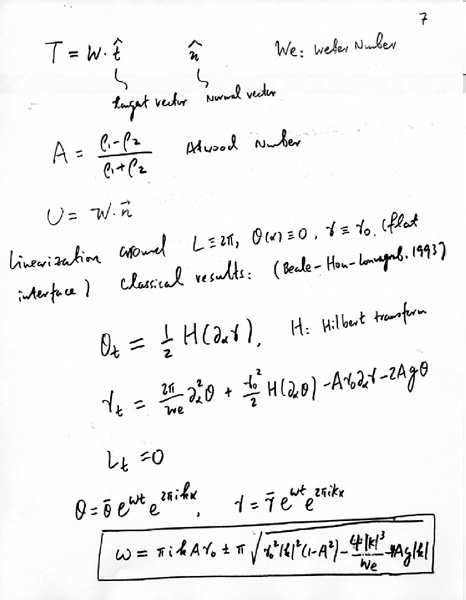 7
T = W · t̂    n̂    We: Weber Number
tangent vector    Normal vector
A = (ρ₁-ρ₂)/(ρ₁+ρ₂)    Atwood Number
U = W · n⃗
Linearization around L ≡ 2π, θ(α) ≡ 0, γ ≡ γ₀. (flat
interface) classical results: (Beale-Hou-Lowengrub, 1993)
θ_t = 1/2 H(∂_α γ),    H: Hilbert transform
γ_t = 2π/We ∂_α² θ + γ₀²/2 H(∂_α θ) - Aγ₀∂_αγ - 2Agθ
L_t = 0
θ = θ̄ e^{ωt} e^{2πikx},    γ = γ̄ e^{ωt} e^{2πikx}
ω = πikAγ₀ ± π √(γ₀²|k|²(1-A²) - 4π|k|³/We - 4Ag|k|)